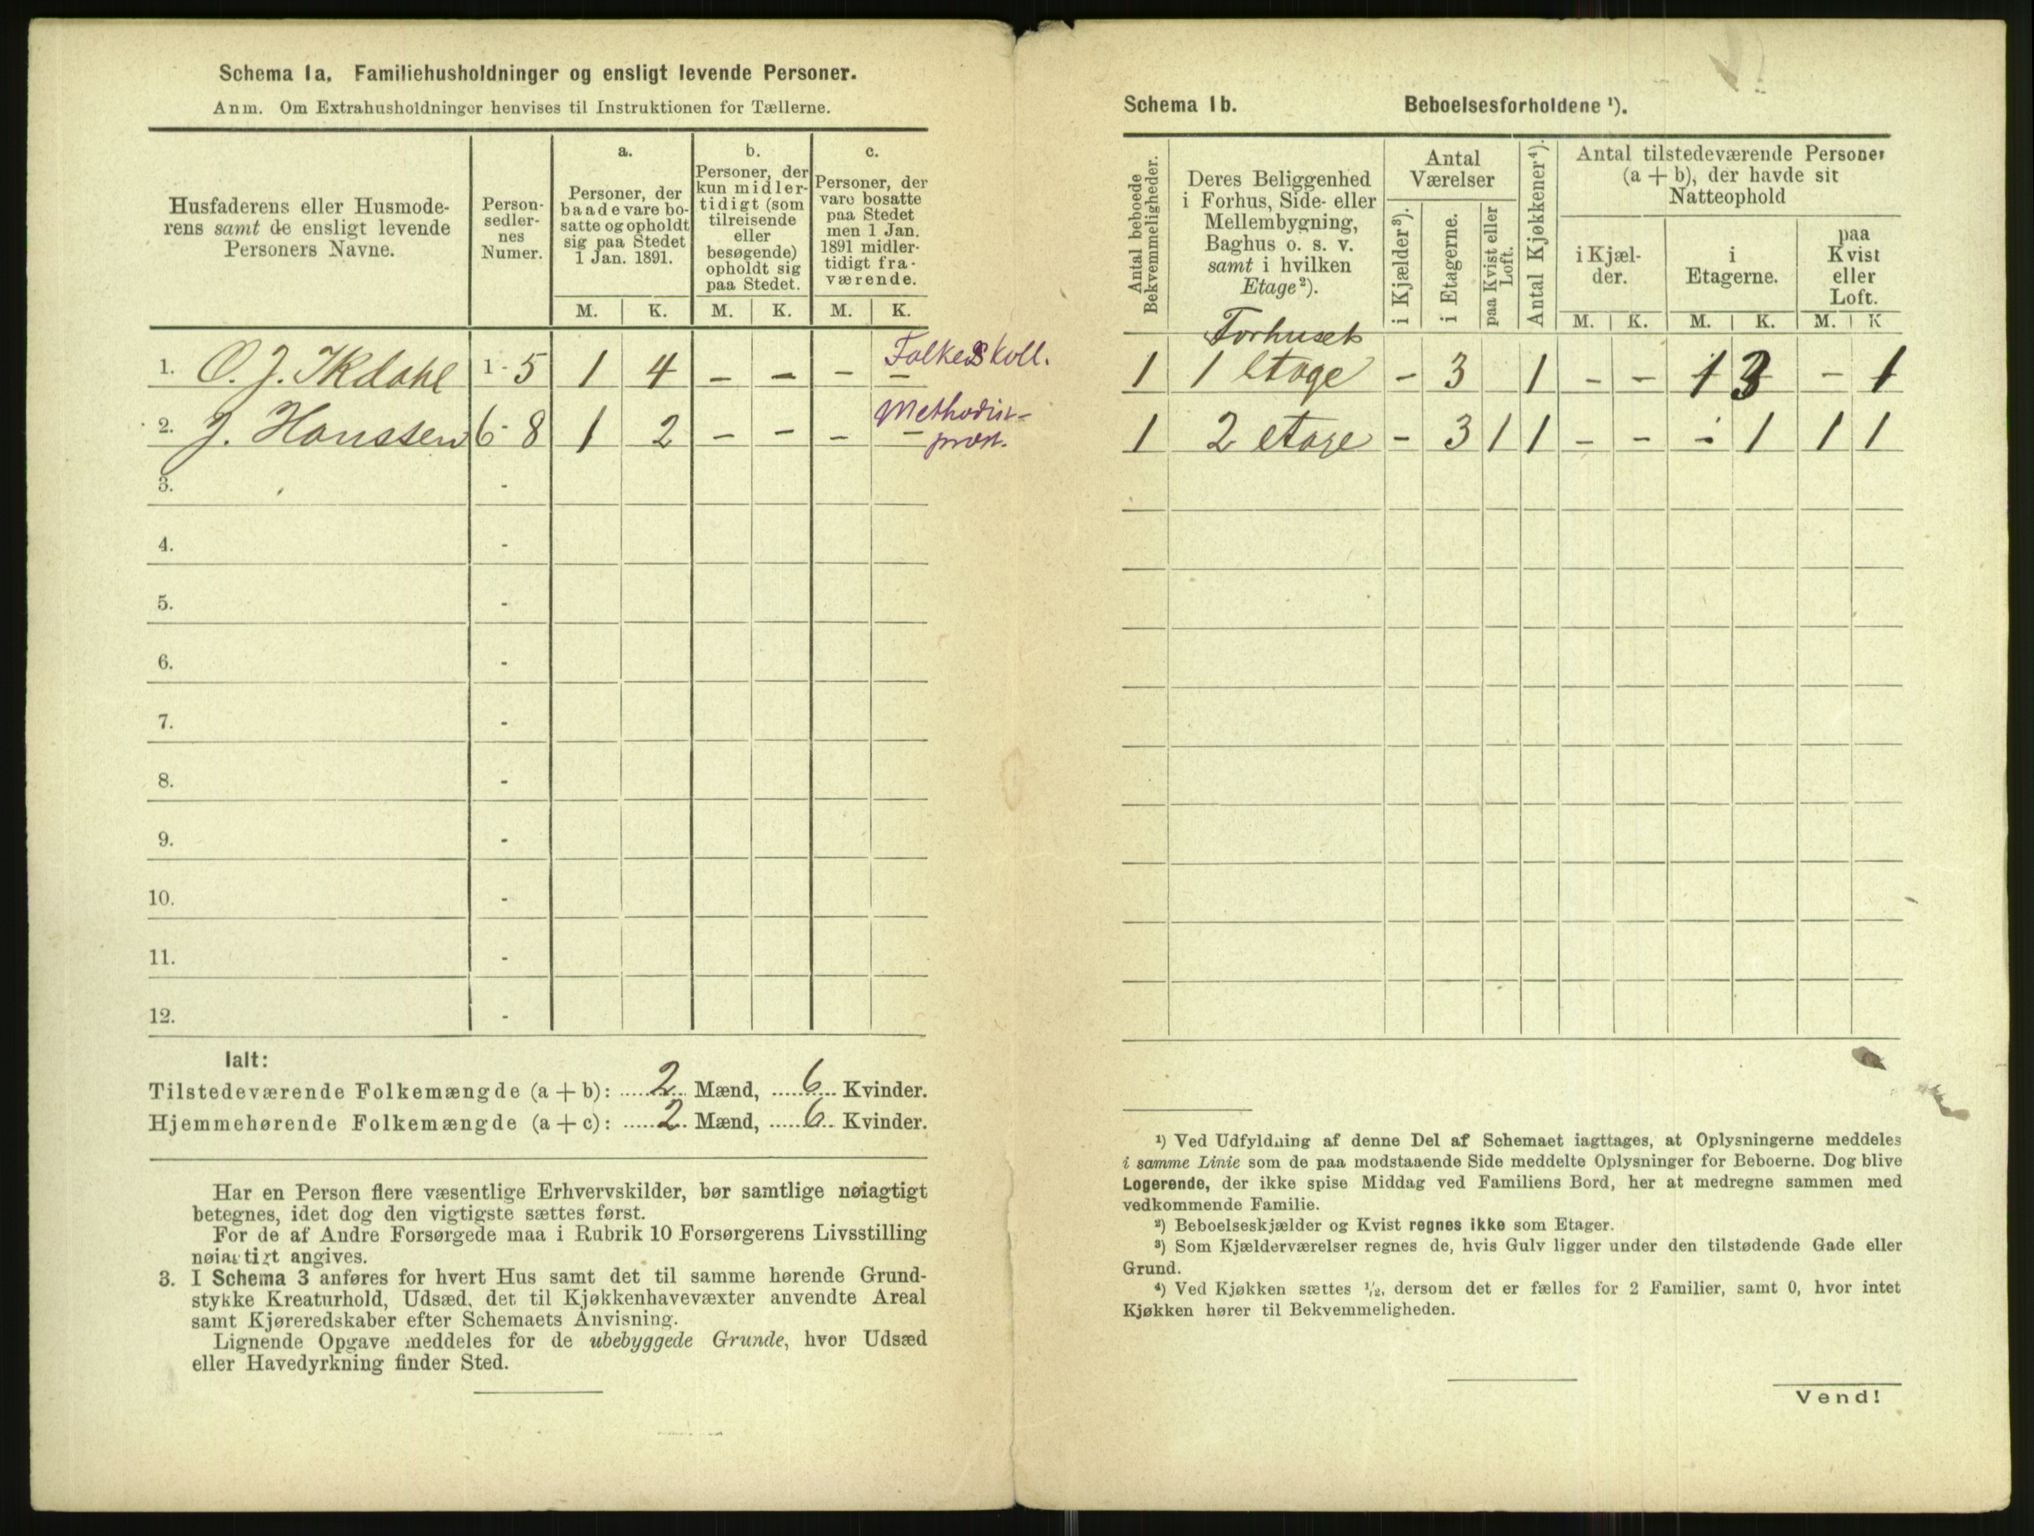 Schema 1a. Familiehusholdninger og ensligt levende Personer.
Anm. Om Extrahusholdninger henvises til Instruktionen for Tællerne.
Husfaderens eller Husmode-
rens samt de ensligt levende
Personers Navne.
Person-
sedler-
nes
Numer.
a.
Personer, der
baade vare bo-
satte og opholdt
sig paa Stedet
1 Jan. 1891.
b.
Personer, der
kun midler-
tidigt (som
tilreisende
eller
besøgende)
opholdt sig
paa Stedet.
c.
Personer, der
vare bosatte
paa Stedet
men 1 Jan.
1891 midler-
tidigt fra-
værende.
M. K. M. K. M. K.
1. O. J. Ikdahl 1-5 1 4 – – – – Folkeskoll.
2. J. Hanssen 6-8 1 2 – – – – Methodist-
præst.
3. -
4. -
5. -
6. -
7. -
8. -
9. -
10. -
11. -
12. -
Ialt:
Tilstedeværende Folkemængde (a + b): 2 Mænd, 6 Kvinder.
Hjemmehørende Folkemængde (a + c): 2 Mænd, 6 Kvinder.
Har en Person flere væsentlige Erhvervskilder, bør samtlige nøiagtigt
betegnes, idet dog den vigtigste sættes først.
For de af Andre Forsørgede maa i Rubrik 10 Forsørgerens Livsstilling
nøiagtigt angives.
3. I Schema 3 anføres for hvert Hus samt det til samme hørende Grund-
stykke Kreaturhold, Udsæd, det til Kjøkkenhavevæxter anvendte Areal
samt Kjøreredskaber efter Schemaets Anvisning.
Lignende Opgave meddeles for de ubebyggede Grunde, hvor Udsæd
eller Havedyrkning finder Sted.
Schema 1b. Beboelsesforholdene ¹).
Antal beboede
Bekvemmeligheder.
Deres Beliggenhed
i Forhus, Side- eller
Mellembygning,
Baghus o. s. v.
samt i hvilken
Etage²).
Antal
Værelser
i Kjælder³).
i Etagerne.
paa Kvist eller
Loft.
Antal Kjøkkener⁴).
Antal tilstedeværende Personer
(a + b), der havde sit
Natteophold
i Kjæl-
der.
i
Etagerne.
paa
Kvist
eller
Loft.
M. K. M. K. M. K
Forhuset
1 1 Etage – 3 1 – – 1 3 – 1
1 2 etage – 3 1 1 – – – 1 1 1
¹) Ved Udfyldning af denne Del af Schemaet iagttages, at Oplysningerne meddeles
i samme Linie som de paa modstaaende Side meddelte Oplysninger for Beboerne. Dog blive
Logerende, der ikke spise Middag ved Familiens Bord, her at medregne sammen med
vedkommende Familie.
²) Beboelseskjælder og Kvist regnes ikke som Etager.
³) Som Kjælderværelser regnes de, hvis Gulv ligger under den tilstødende Gade eller
Grund.
⁴) Ved Kjøkken sættes ¹/₂, dersom det er fælles for 2 Familier, samt 0, hvor intet
Kjøkken hører til Bekvemmeligheden.
Vend!